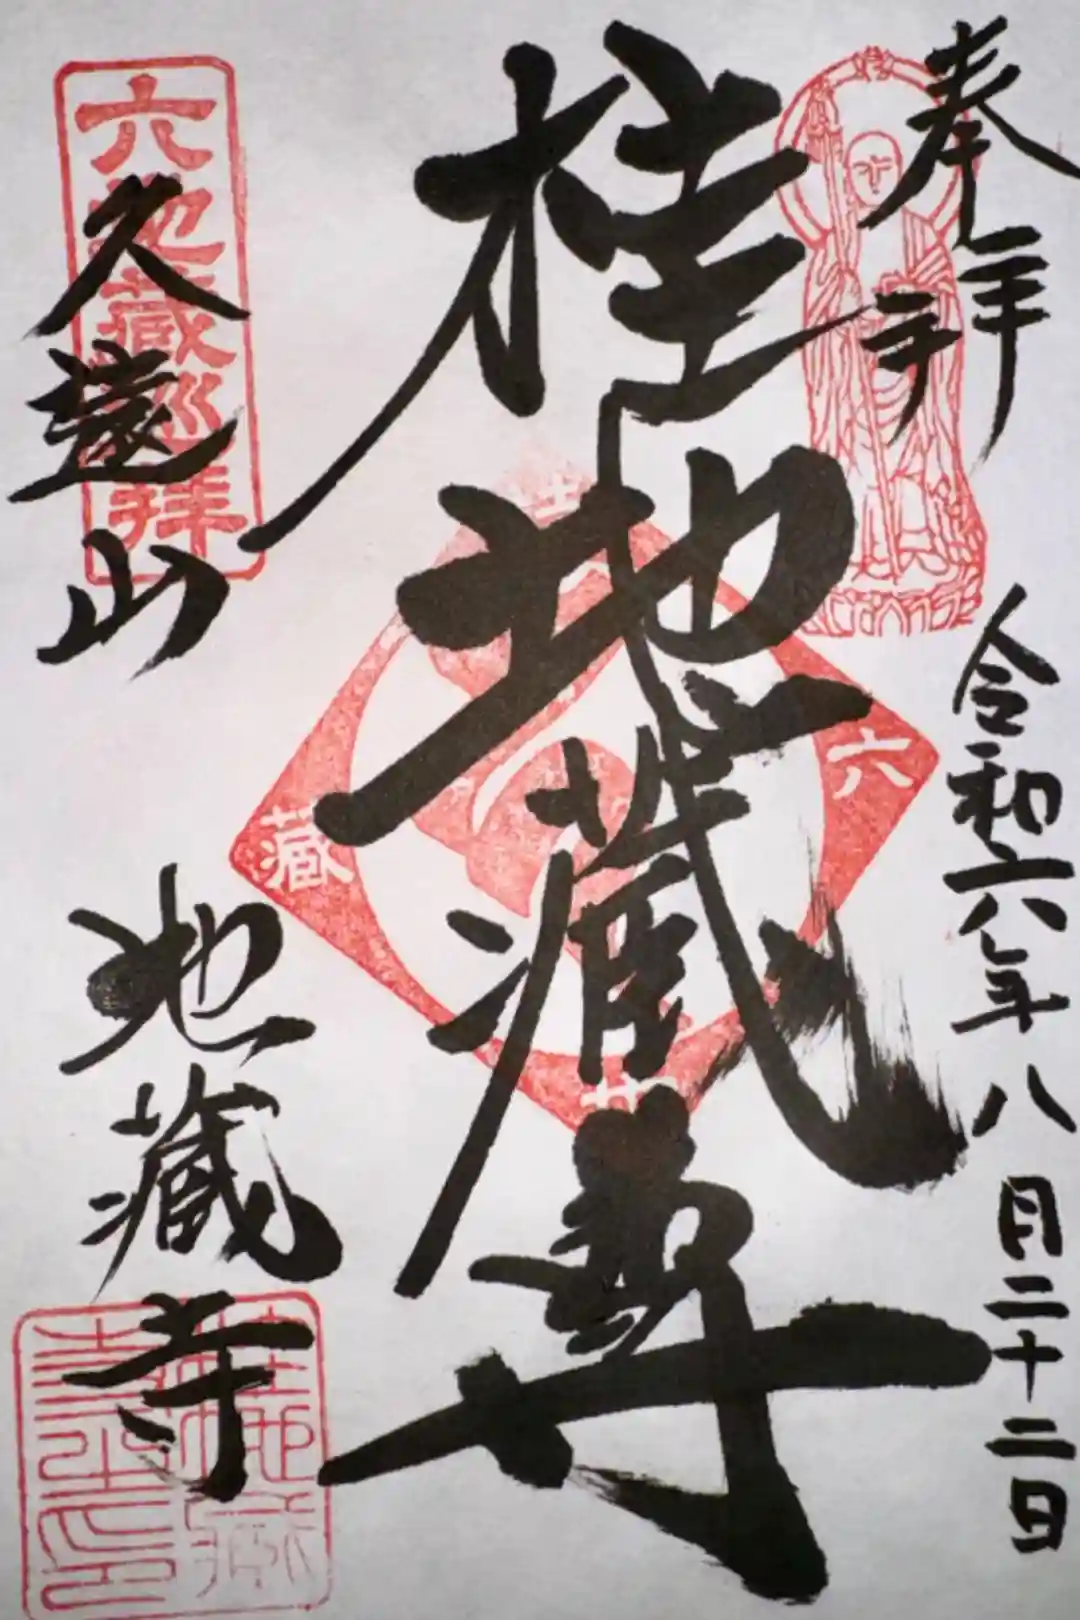 奉拝
令和六年八月二十二日
桂地蔵尊
六
蔵
六地蔵巡拝
久遠山
地蔵寺